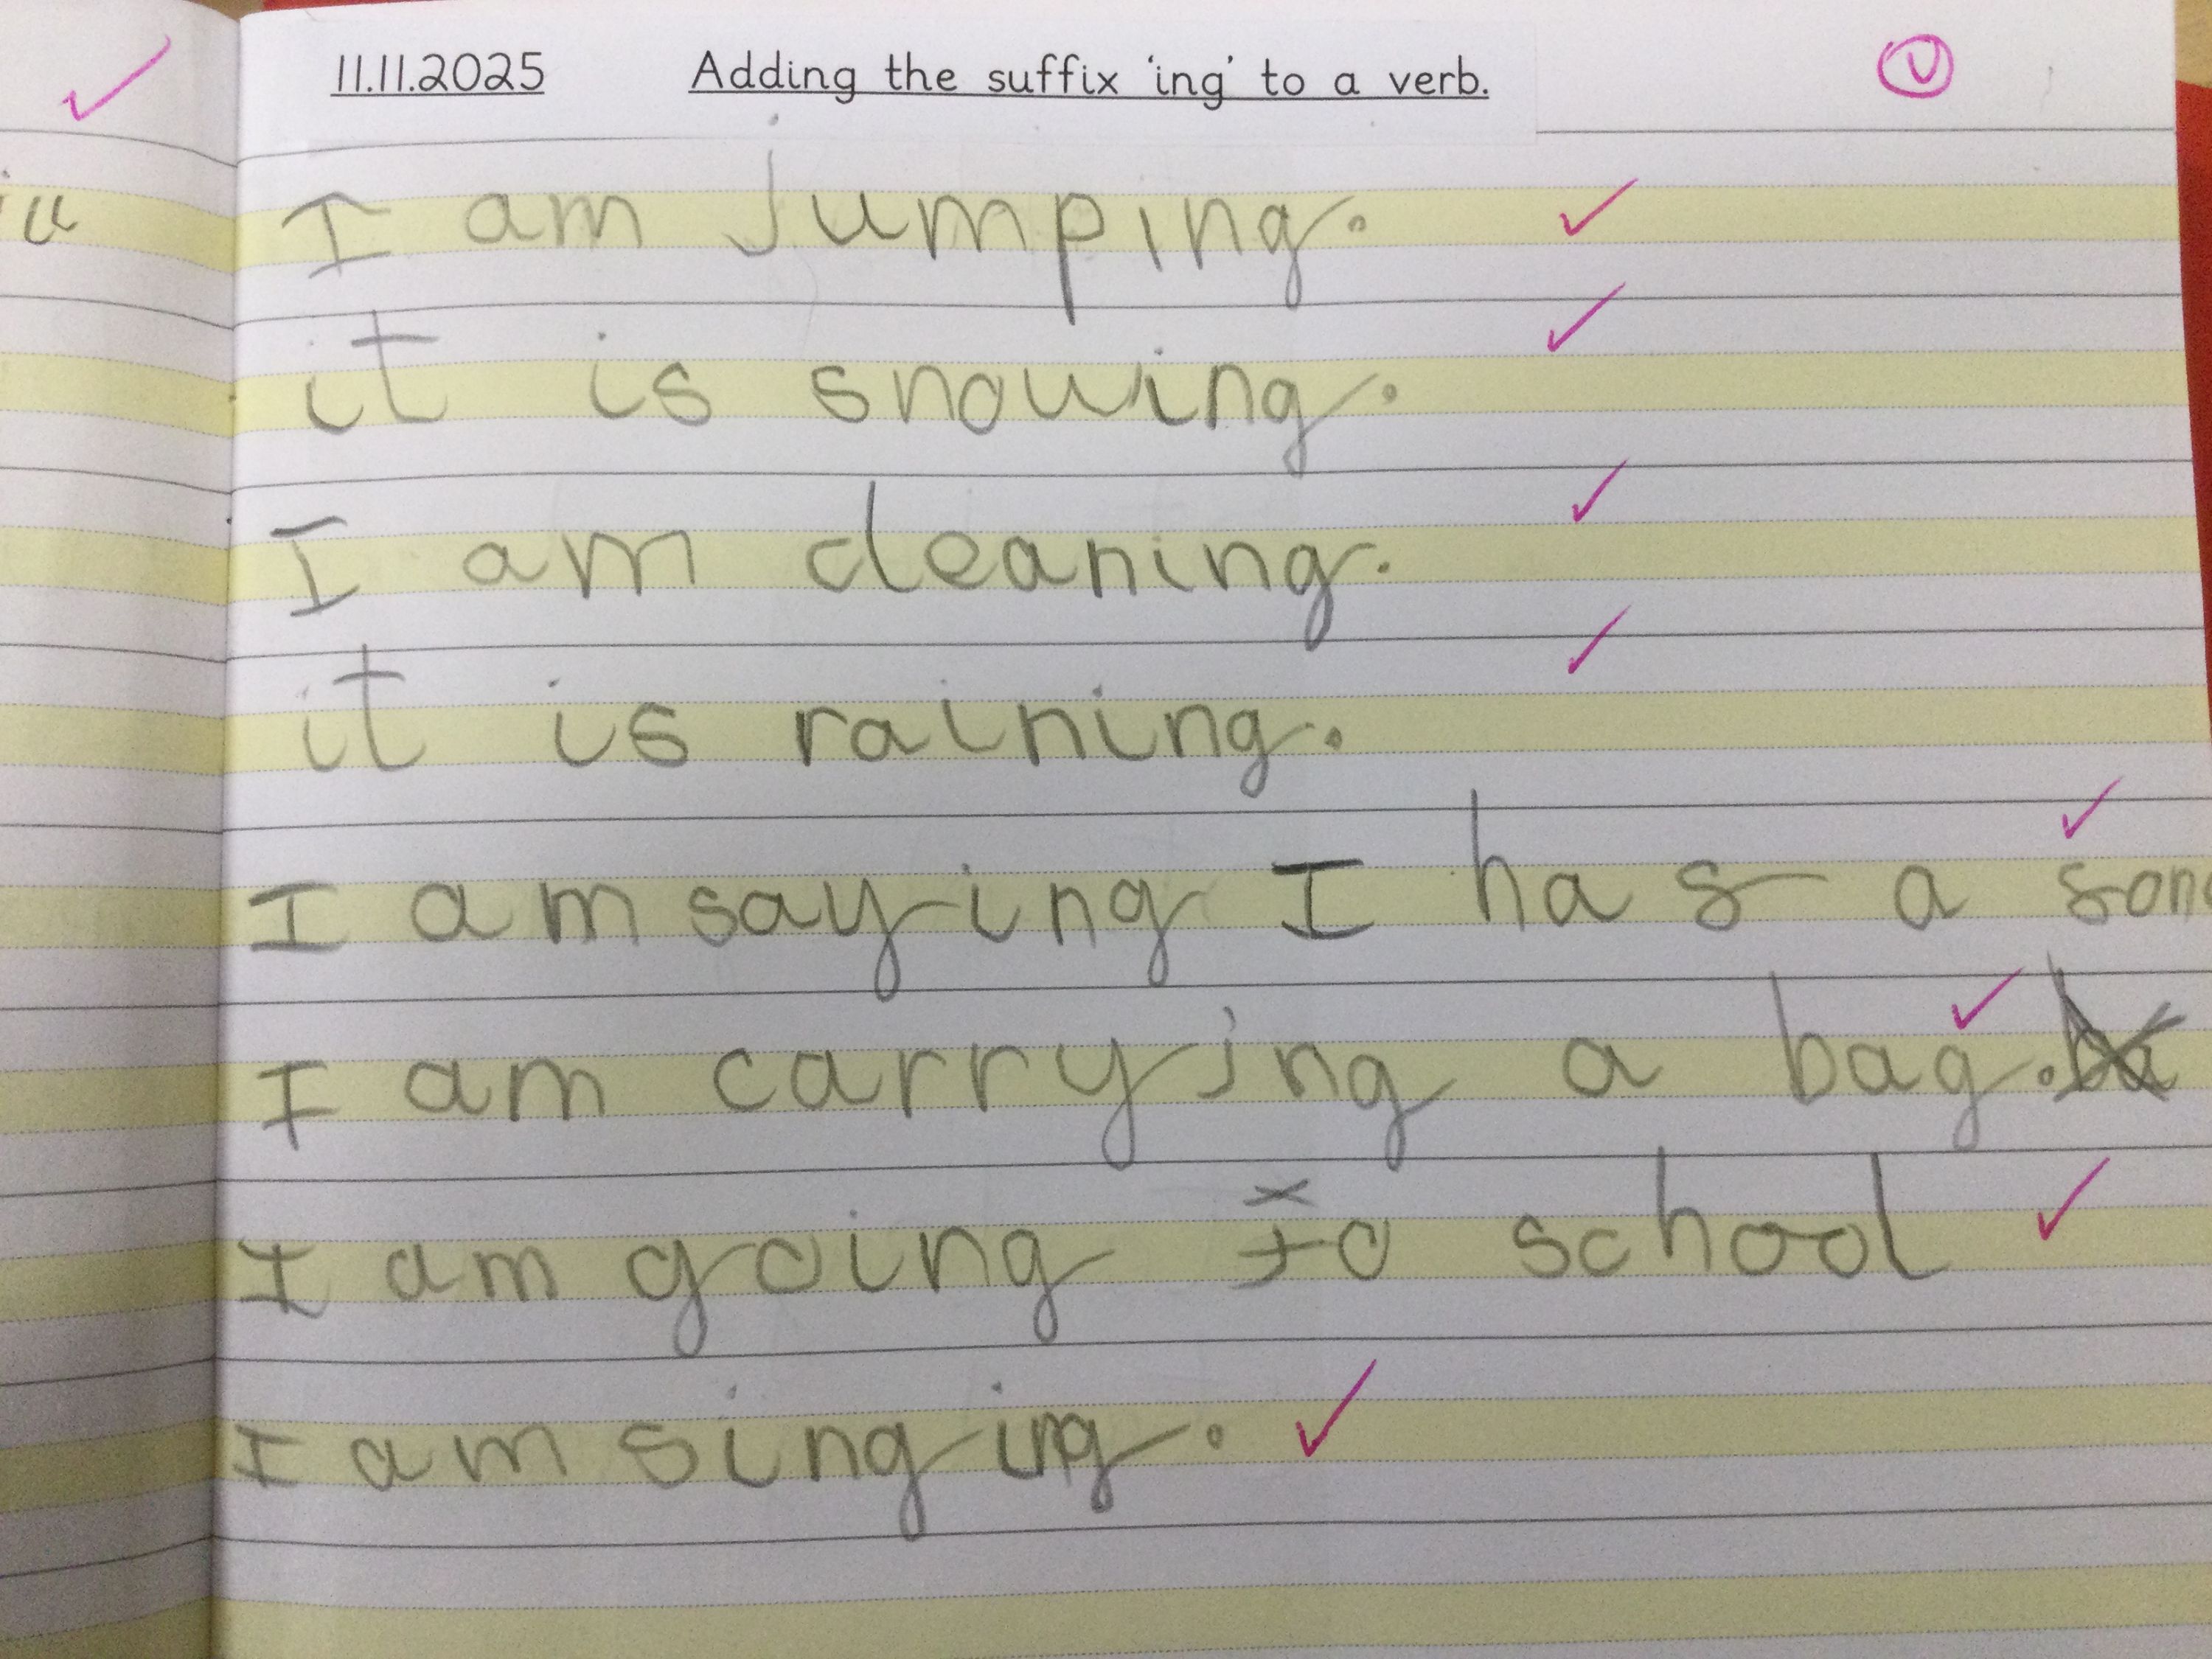 11.11.2025 Adding the suffix 'ing' to a verb.
I am jumping.
it is snowing.
I am cleaning.
it is raining.
I am saying I has a
I am carrying a bag.
I am going to school
I am singing.